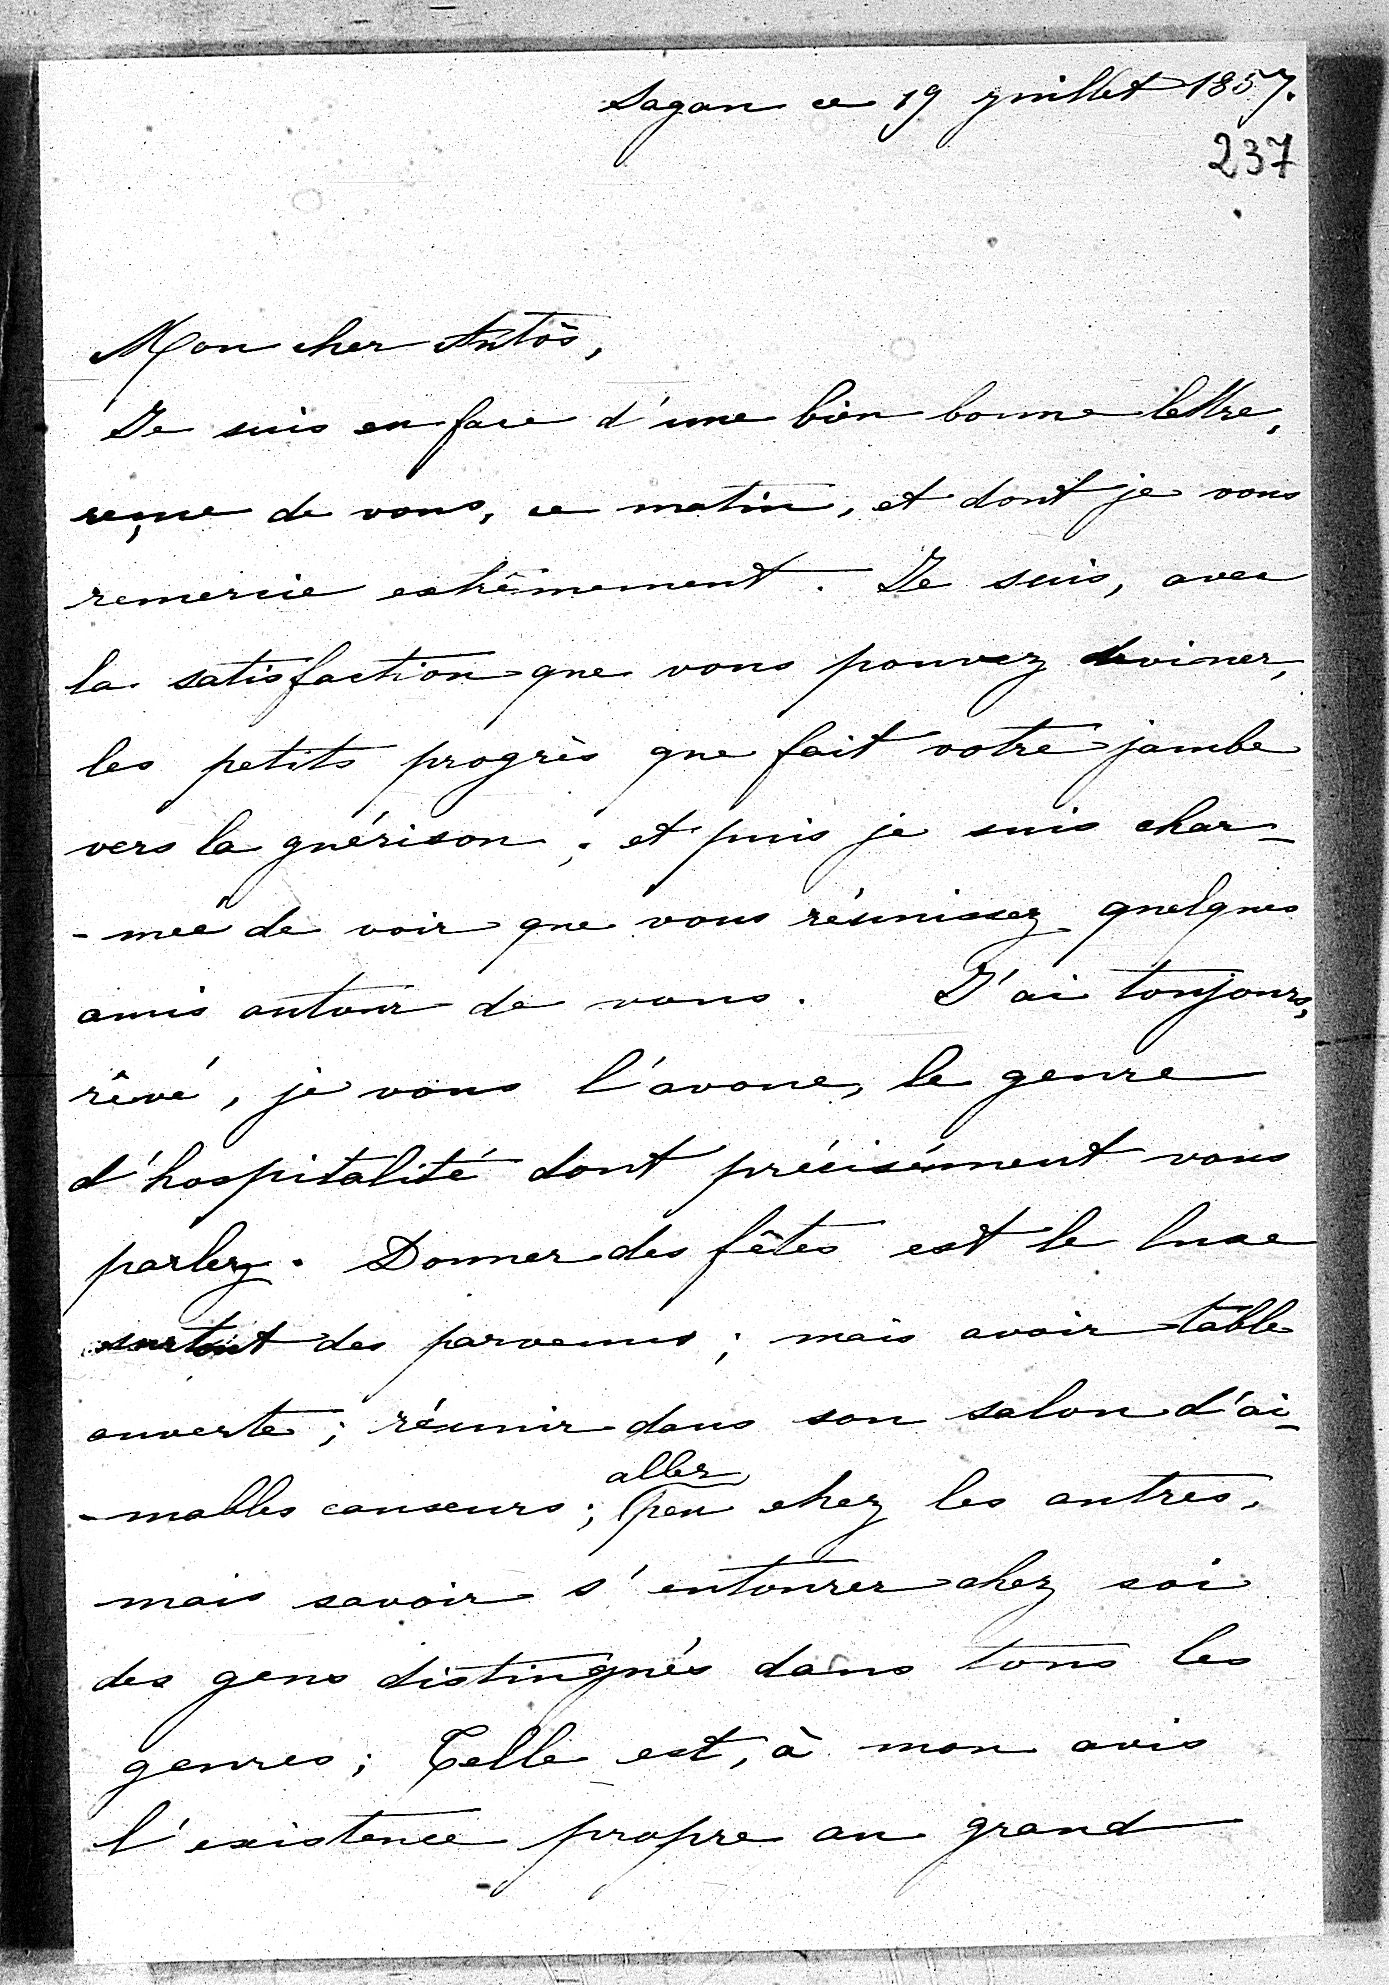 Sagan ce 19 juillet 1857.
237
Mon cher Antòs,
Je suis en face d'une bien bonne lettre,
reçue de vous, ce matin, et dont je vous
remercie extrêmement. Je suis, avec
la satisfaction que vous pouvez deviner,
les petits progrès que fait votre jambe
vers la guérison ; et puis je suis char-
-mée de voir que vous réunissez quelques
amis autour de vous. J'ai toujours,
rêvé, je vous l'avoue, le genre
d'hospitalité dont précisément vous
parlez. Donner des fêtes est le luxe
surtout des parvenus ; mais avoir table
ouverte ; réunir dans son salon d'ai-
-mables causeurs ; aller peu chez les autres,
mais savoir s'entourer chez soi
des gens distingués dans tous les
genres ; Telle est, à mon avis
l'existence propre au grand